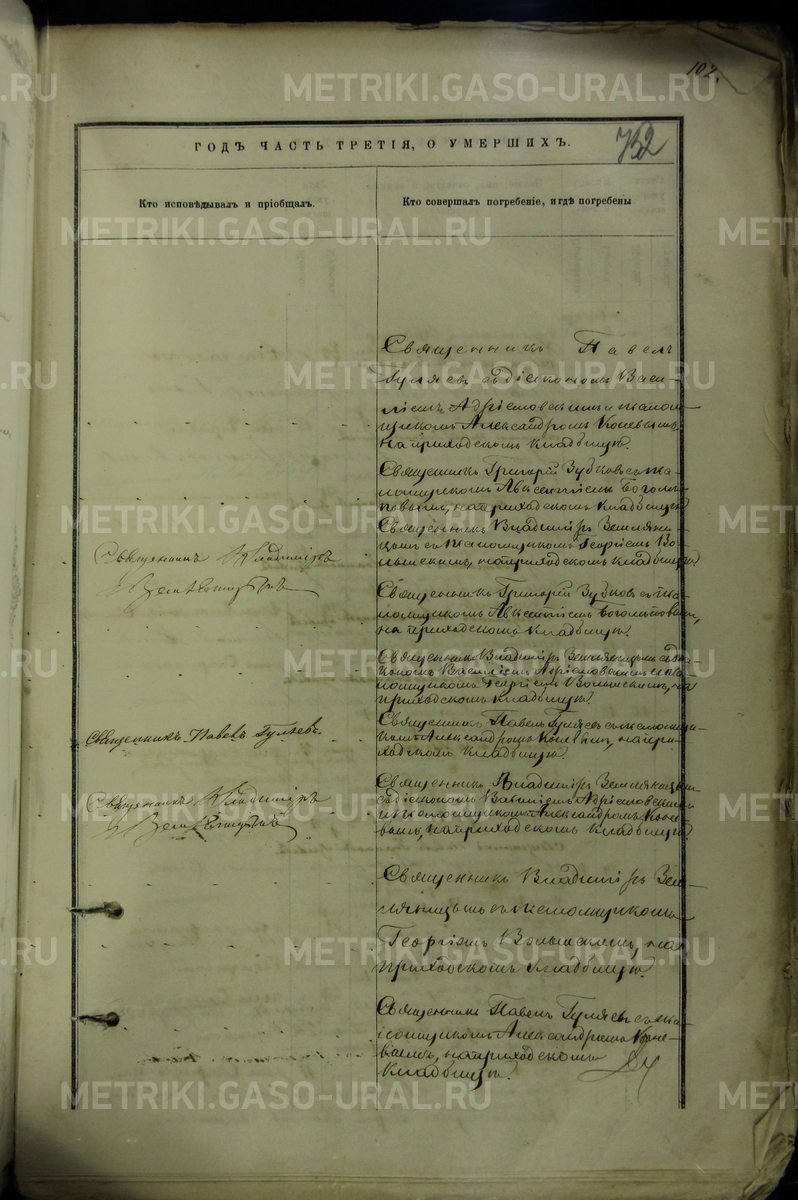 102.
ГОДЪ ЧАСТЬ ТРЕТІЯ, О УМЕРШИХЪ.
732
Кто исповѣдывалъ и пріобщалъ.
Кто совершалъ погребеніе, и гдѣ погребены
Священникъ Павелъ
Гуляевъ съ діакономъ Васи-
ліемъ Адріановскимъ и псалом-
щикомъ Александромъ Коневымъ,
на приходскомъ кладбищѣ.
Священникъ Григорій Зубковъ съ пса-
ломщикомъ Авксентіемъ Боголѣ-
повымъ, на приходскомъ кладбищѣ.
Священникъ Владиміръ Земляни-
цынъ съ псаломщикомъ Георгіемъ
на приходскомъ кладбищѣ.
Священникъ Владиміръ
Земляницынъ
Священникъ Григорій Зубковъ съ пса-
ломщикомъ Авксентіемъ Боголѣповымъ,
на приходскомъ кладбищѣ.
Священникъ Владиміръ Земляницынъ съ діа-
кономъ Василіемъ Адріановскимъ и пса-
ломщикомъ Георгіемъ на
приходскомъ кладбищѣ.
Священникъ Павелъ Гуляевъ
Священникъ Павелъ Гуляевъ съ псаломщи-
комъ Александромъ Коневымъ, на при-
ходскомъ кладбищѣ.
Священникъ Владиміръ
Земляницынъ
Священникъ Владиміръ Земляницынъ
съ діакономъ Василіемъ Адріановскимъ
и псаломщикомъ Александромъ Коне-
вымъ, на приходскомъ кладбищѣ.
Священникъ Владиміръ Зем-
ляницынъ съ псаломщикомъ
Георгіемъ на
приходскомъ кладбищѣ.
Священникъ Павелъ Гуляевъ съ пса-
ломщикомъ Александромъ Коне-
вымъ, на приходскомъ
кладбищѣ.
METRIKI.GASO-URAL.RU